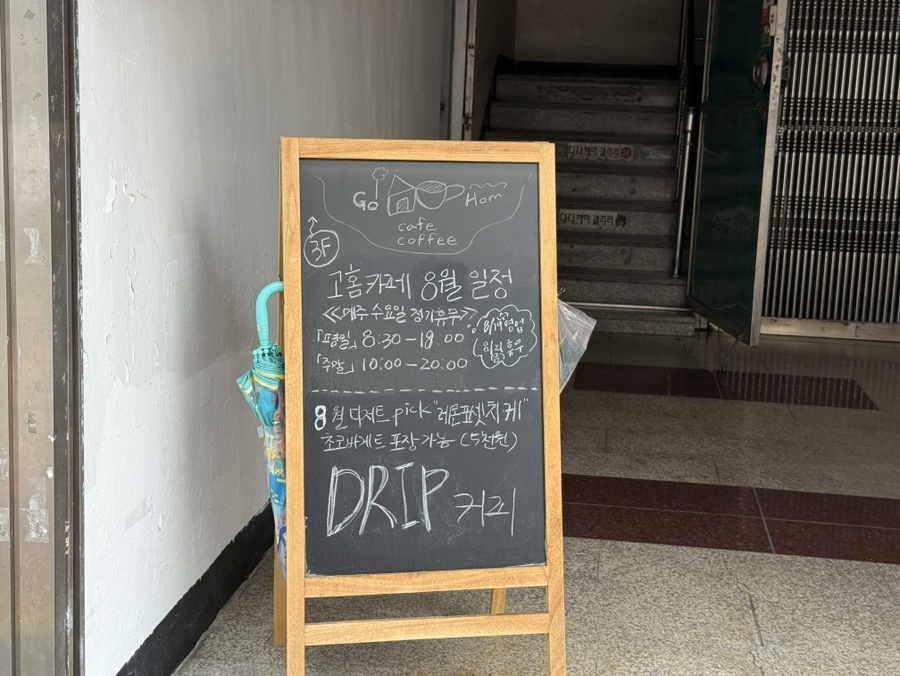 Go Hom
cafe
coffee
3F
고홈카페 8월 일정
<<매주 수요일 정기휴무>>
「평일」 8:30-18:00
「주말」 10:00-20:00
영업
휴무
8월 디저트 pick "레몬포셋치케"
초코바게트 포장가능 (5천원)
DRIP 커피